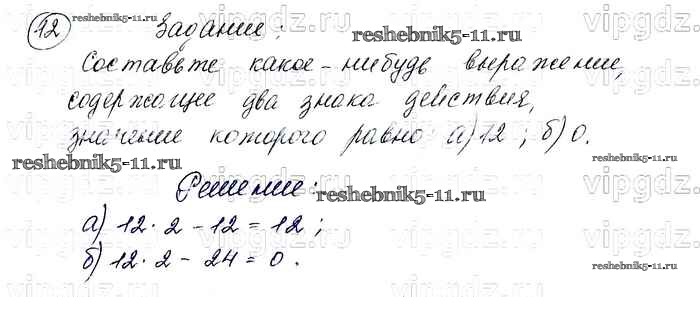 12 Задание: reshebnik5-11.ru
Составьте какое-нибудь выражение,
содержащее два знака действия,
значение которого равно а) 12; б) 0.
reshebnik5-11.ru
Решение: reshebnik5-11.ru
а) 12 · 2 - 12 = 12;
б) 12 · 2 - 24 = 0.
reshebnik5-11.ru
vipgdz.ru